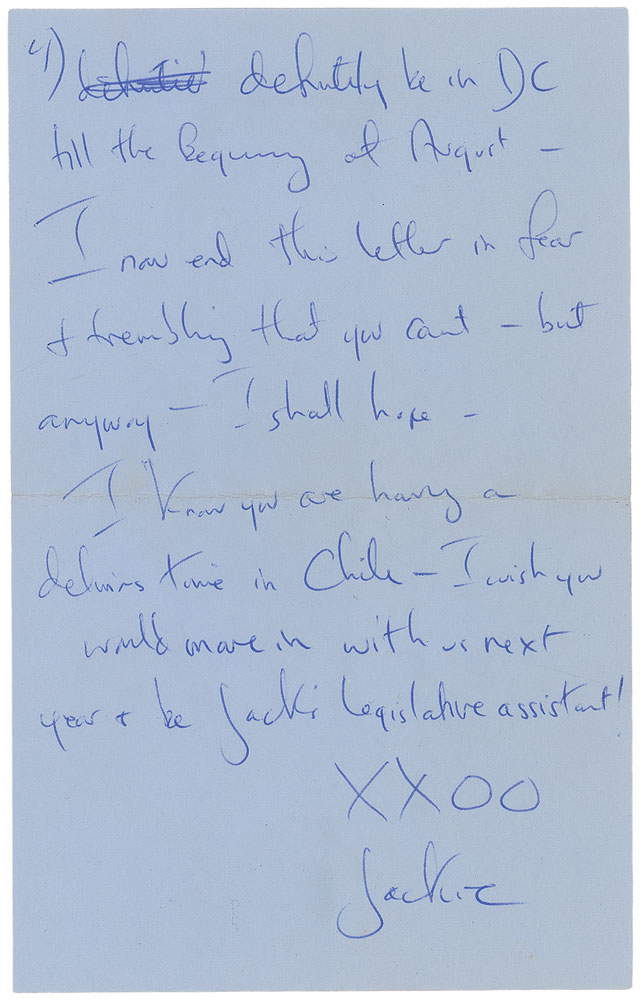 4) definitely be in DC
till the beginning of August –
I now end this letter in fear
& trembling that you cant – but
anyway – I shall hope –
I know you are having a
time in Chile – I wish you
would move in with us next
year & be Jack's legislative assistant!
XXOO
Jackie